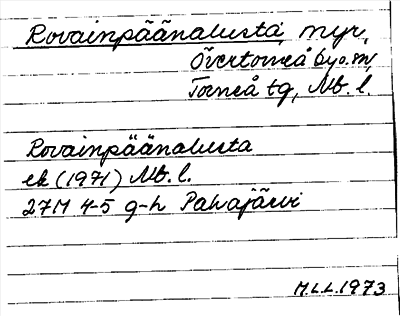 Rovainpäänalusta, myr,
Övertorneå by o. sn,
Torneå tg, Nb. l.
Rovainpäänalusta
ek (1971) Nb. l.
27M 4-5 g-h Palvajärvi
M.L.L. 1973